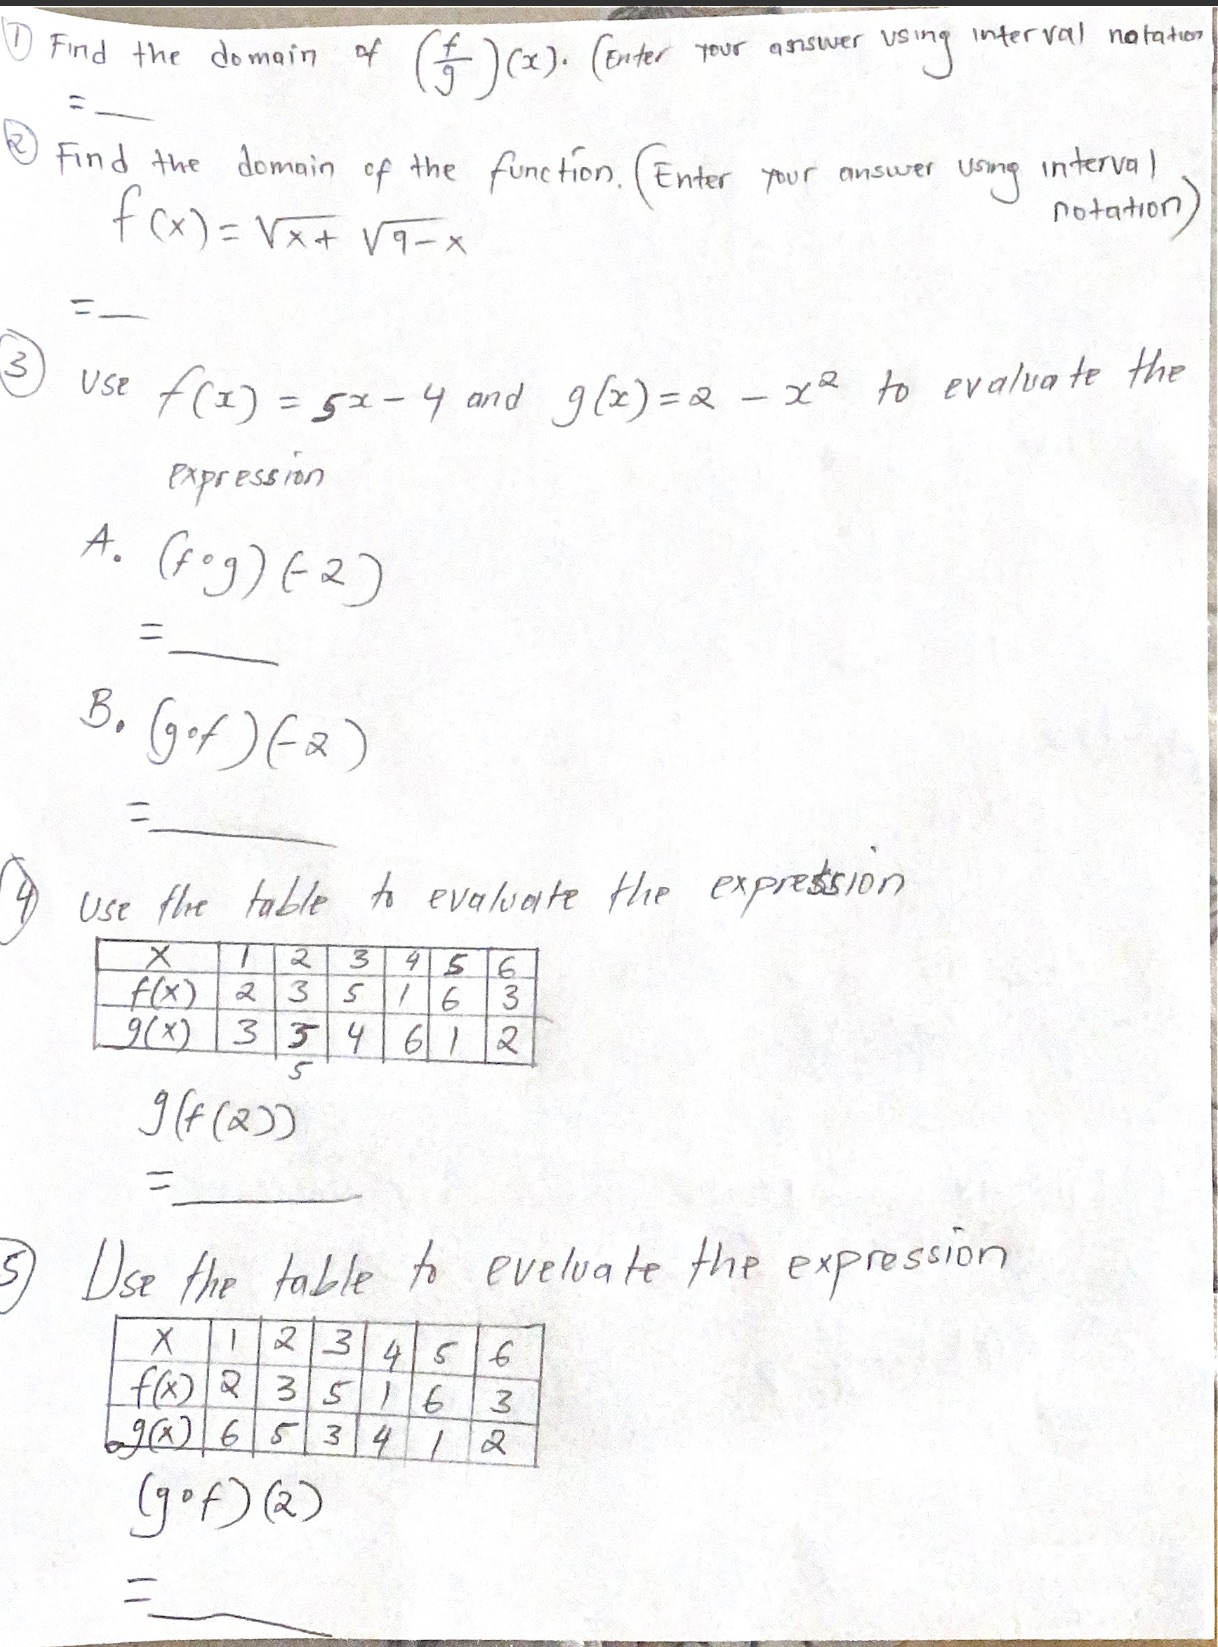 ① Find the domain of (f/g)(x). (Enter your answer using interval notation
= __
② Find the domain of the function. (Enter your answer using interval
notation)
f(x) = √x + √9-x
= __
③ Use f(x) = 5x - 4 and g(x) = 2 - x² to evaluate the
expression
A. (f∘g)(-2)
= ____
B. (g∘f)(-2)
= ____
④ Use the table to evaluate the expression
x 1 2 3 4 5 6
f(x) 2 3 5 1 6 3
g(x) 3 5 4 6 1 2
5
g(f(2))
= ____
⑤ Use the table to eveluate the expression
x 1 2 3 4 5 6
f(x) 2 3 5 1 6 3
g(x) 6 5 3 4 1 2
(g∘f)(2)
= ____